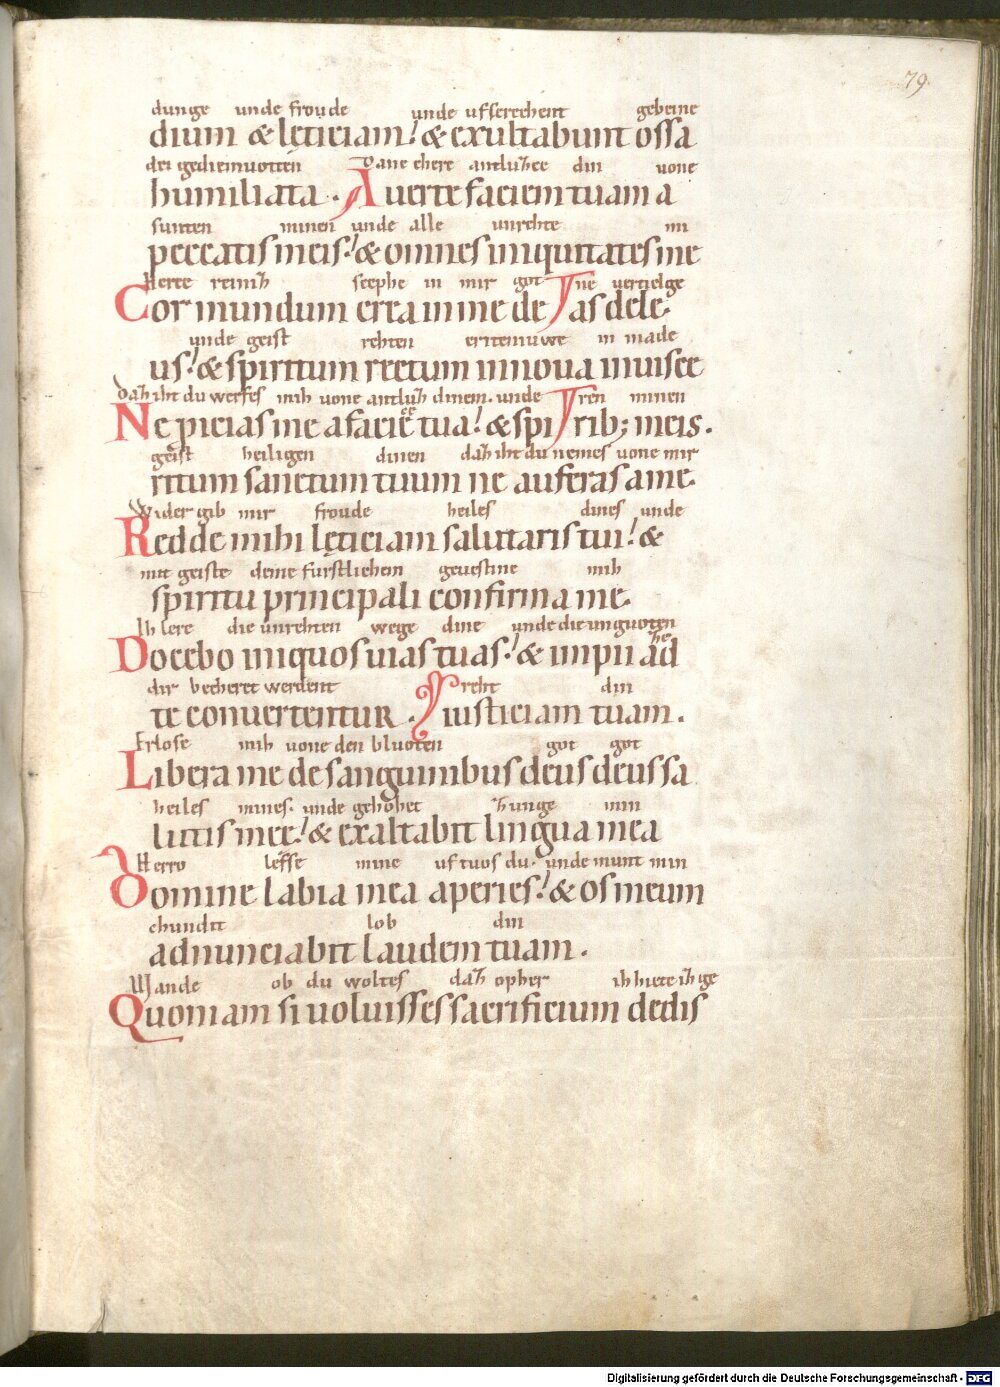 79.
dunge unde froude unde ufserechent gebeine
dium & lęticiam! & exultabunt ossa
der gediemuotten Dane chere antluzce din vone
humiliata. Auerte faciem tuam a
sunten minen unde alle unrehte mi
peccatis meis! & omnes iniquitates me
Herce reiniz scephe in mir got ne vertielge
Cor mundum crea in me de as dele.
unde geist rehten erniemuwe in made
us! & spiritum rectum innoua in uisce
Daz iht du werfes mih vone antluz dinem. unde ren minen
Ne proicias me a facie tua! & spi rib; meis.
geist heiligen dinen daz iht du nemes vone mir
ritum sanctum tuum ne auferas a me.
Wider gib mir froude heiles dines unde
Redde mihi lęticiam salutaris tui! &
mit geiste deme furstlichem gevestine mih
spiritu principali confirma me.
Ih lere die unrehten wege dine unde die unguoten
Docebo iniquos uias tuas! & impii ad
dir becheret werdent reht din
te conuertentur. iusticiam tuam.
Erlose mih vone den bluoten got got
Libera me de sanguinibus deus deus sa
heiles mines. unde gehohet zunge min
lutis mee! & exaltabit lingua mea
Herro leffse mine uf tuos du. unde munt min
Domine labia mea aperies! & os meum
chundit lob din
adnunciabit laudem tuam.
Wande ob du woltes daz opher ih hiete iz ge
Quoniam si uoluisses sacrificium dedis
Digitalisierung gefördert durch die Deutsche Forschungsgemeinschaft - DFG